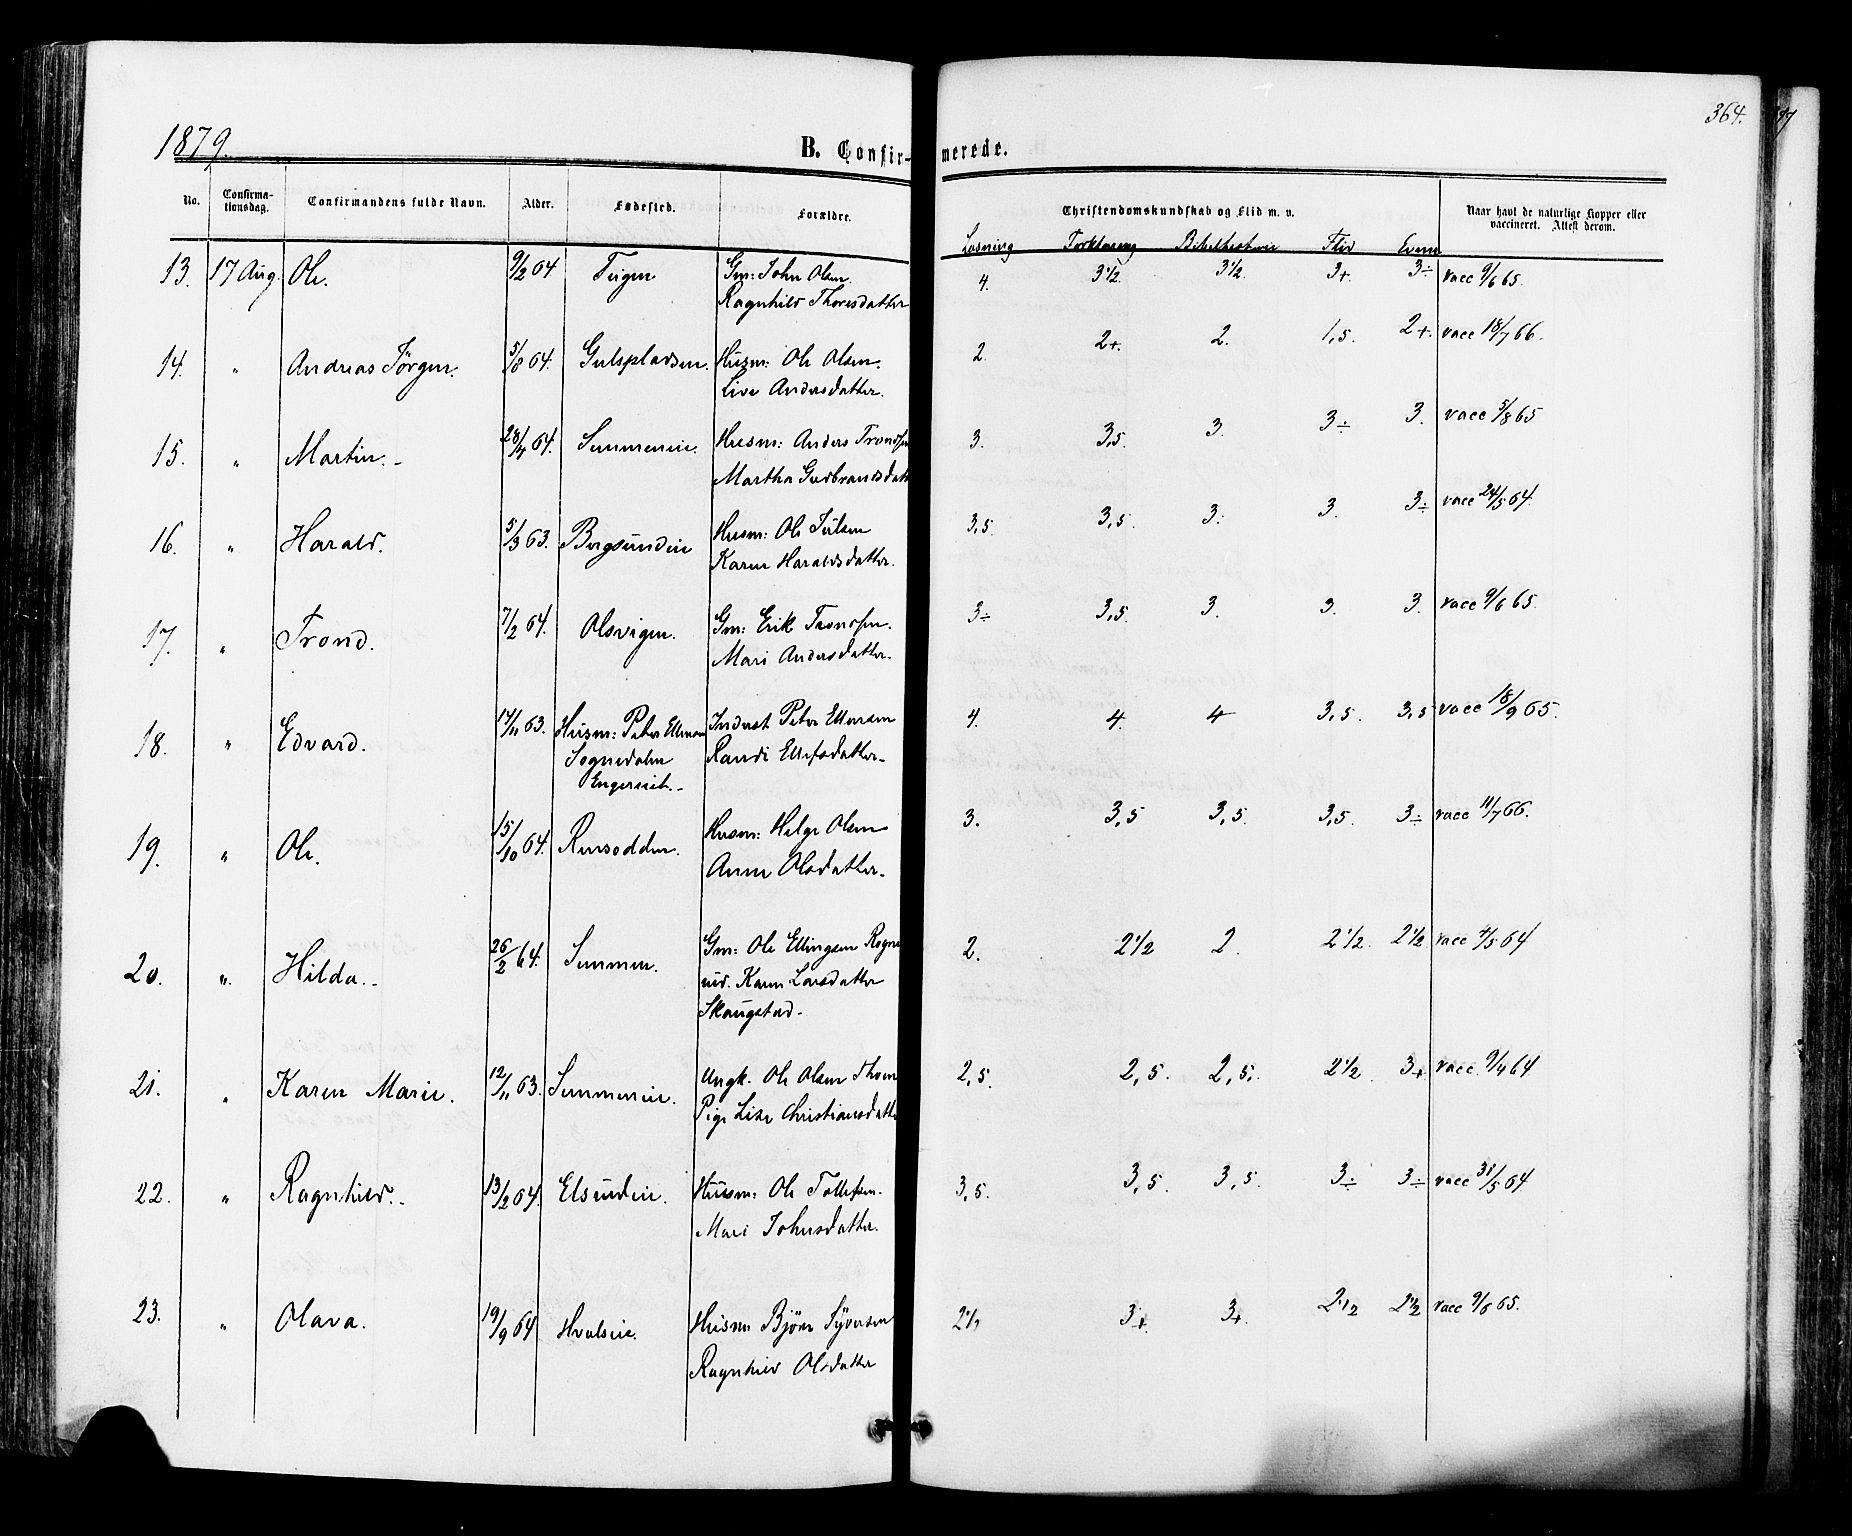 1879.
364.
B. Confirmerede.
No. Confirmationsdag. Confirmandens fulde Navn. Alder. Fødested. Forældre. Christendomskundskab og Flid m. v. Naar havt de naturlige Kopper eller vaccineret. Attest derom.
Læsning Forklaring Bibelhistorie Flid Evner
13. 17 Aug. Ole. 9/2 64 Teigen Gm: John Olsen 4. 3 1/2. 3 1/2. 3+. 3÷ vacc 9/6 65.
Ragnhild Thoresdatter
14. " Andreas Jörgen. 5/8 64. Gulspladsen. Husm: Ole Olsen. 2. 2+. 2. 1,5. 2+. vacc 18/7 66.
Live Andersdatter.
15. " Martin. 28/4 64. Semmeneie. Husm: Anders Trondsen 3. 3,5. 3. 3÷ 3. vacc 5/8 65
Martha Gudbrandsdatt
16. " Harald. 5/3 63. Bergsundeie Husm: Ole Julsen 3,5. 3,5. 3. 3. 3÷ vacc 24/5 64.
Karen Haraldsdatter.
17. " Trond. 7/2 64. Olsvigen. Gm: Erik Trondsen. 3÷ 3,5. 3. 3. 3. vacc 9/6 65.
Mari Andersdatter.
18. " Edvard. 14/11 63. Husm: Peter Ellevsen Inderst Peter Ellevsen 4. 4. 4 3,5. 3,5 vacc 18/9 65.
Sognedalen Randi Ellefsdatter
Engereiet.
19. " Ole. 15/10 64. Rensodden. Husm: Helge Olsen 3. 3,5 3,5. 3,5. 3÷ vacc 11/7 66.
Anne Olsdatter
20. " Hilda. 26/2 64. Semmen. Gm: Ole Ellingsen Rogne 2. 2 1/2 2. 2 1/2. 2 1/2 vacc 4/5 64
ud. Karen Larsdatter
Skaugstad
21. " Karen Marie. 12/11 63. Semmeneie. Ungk. Ole Olsen Thon 2,5. 2,5. 2,5. 2 1/2 3+ vacc 9/4 64
Pige Lise Christiansdatt
22. " Ragnhild. 13/2 64. Elsrudeie. Husm: Ole Tollefsen. 3,5. 3,5. 3,5. 3÷ 3÷ vacc 31/5 64
Mari Johnsdatter.
23. " Olava. 19/9 64 Hvalseie. Husm Bjørn Syversen 2 1/2 3+. 3+. 2 1/2 2 1/2 vacc 9/6 65.
Ragnhild Olsdatter